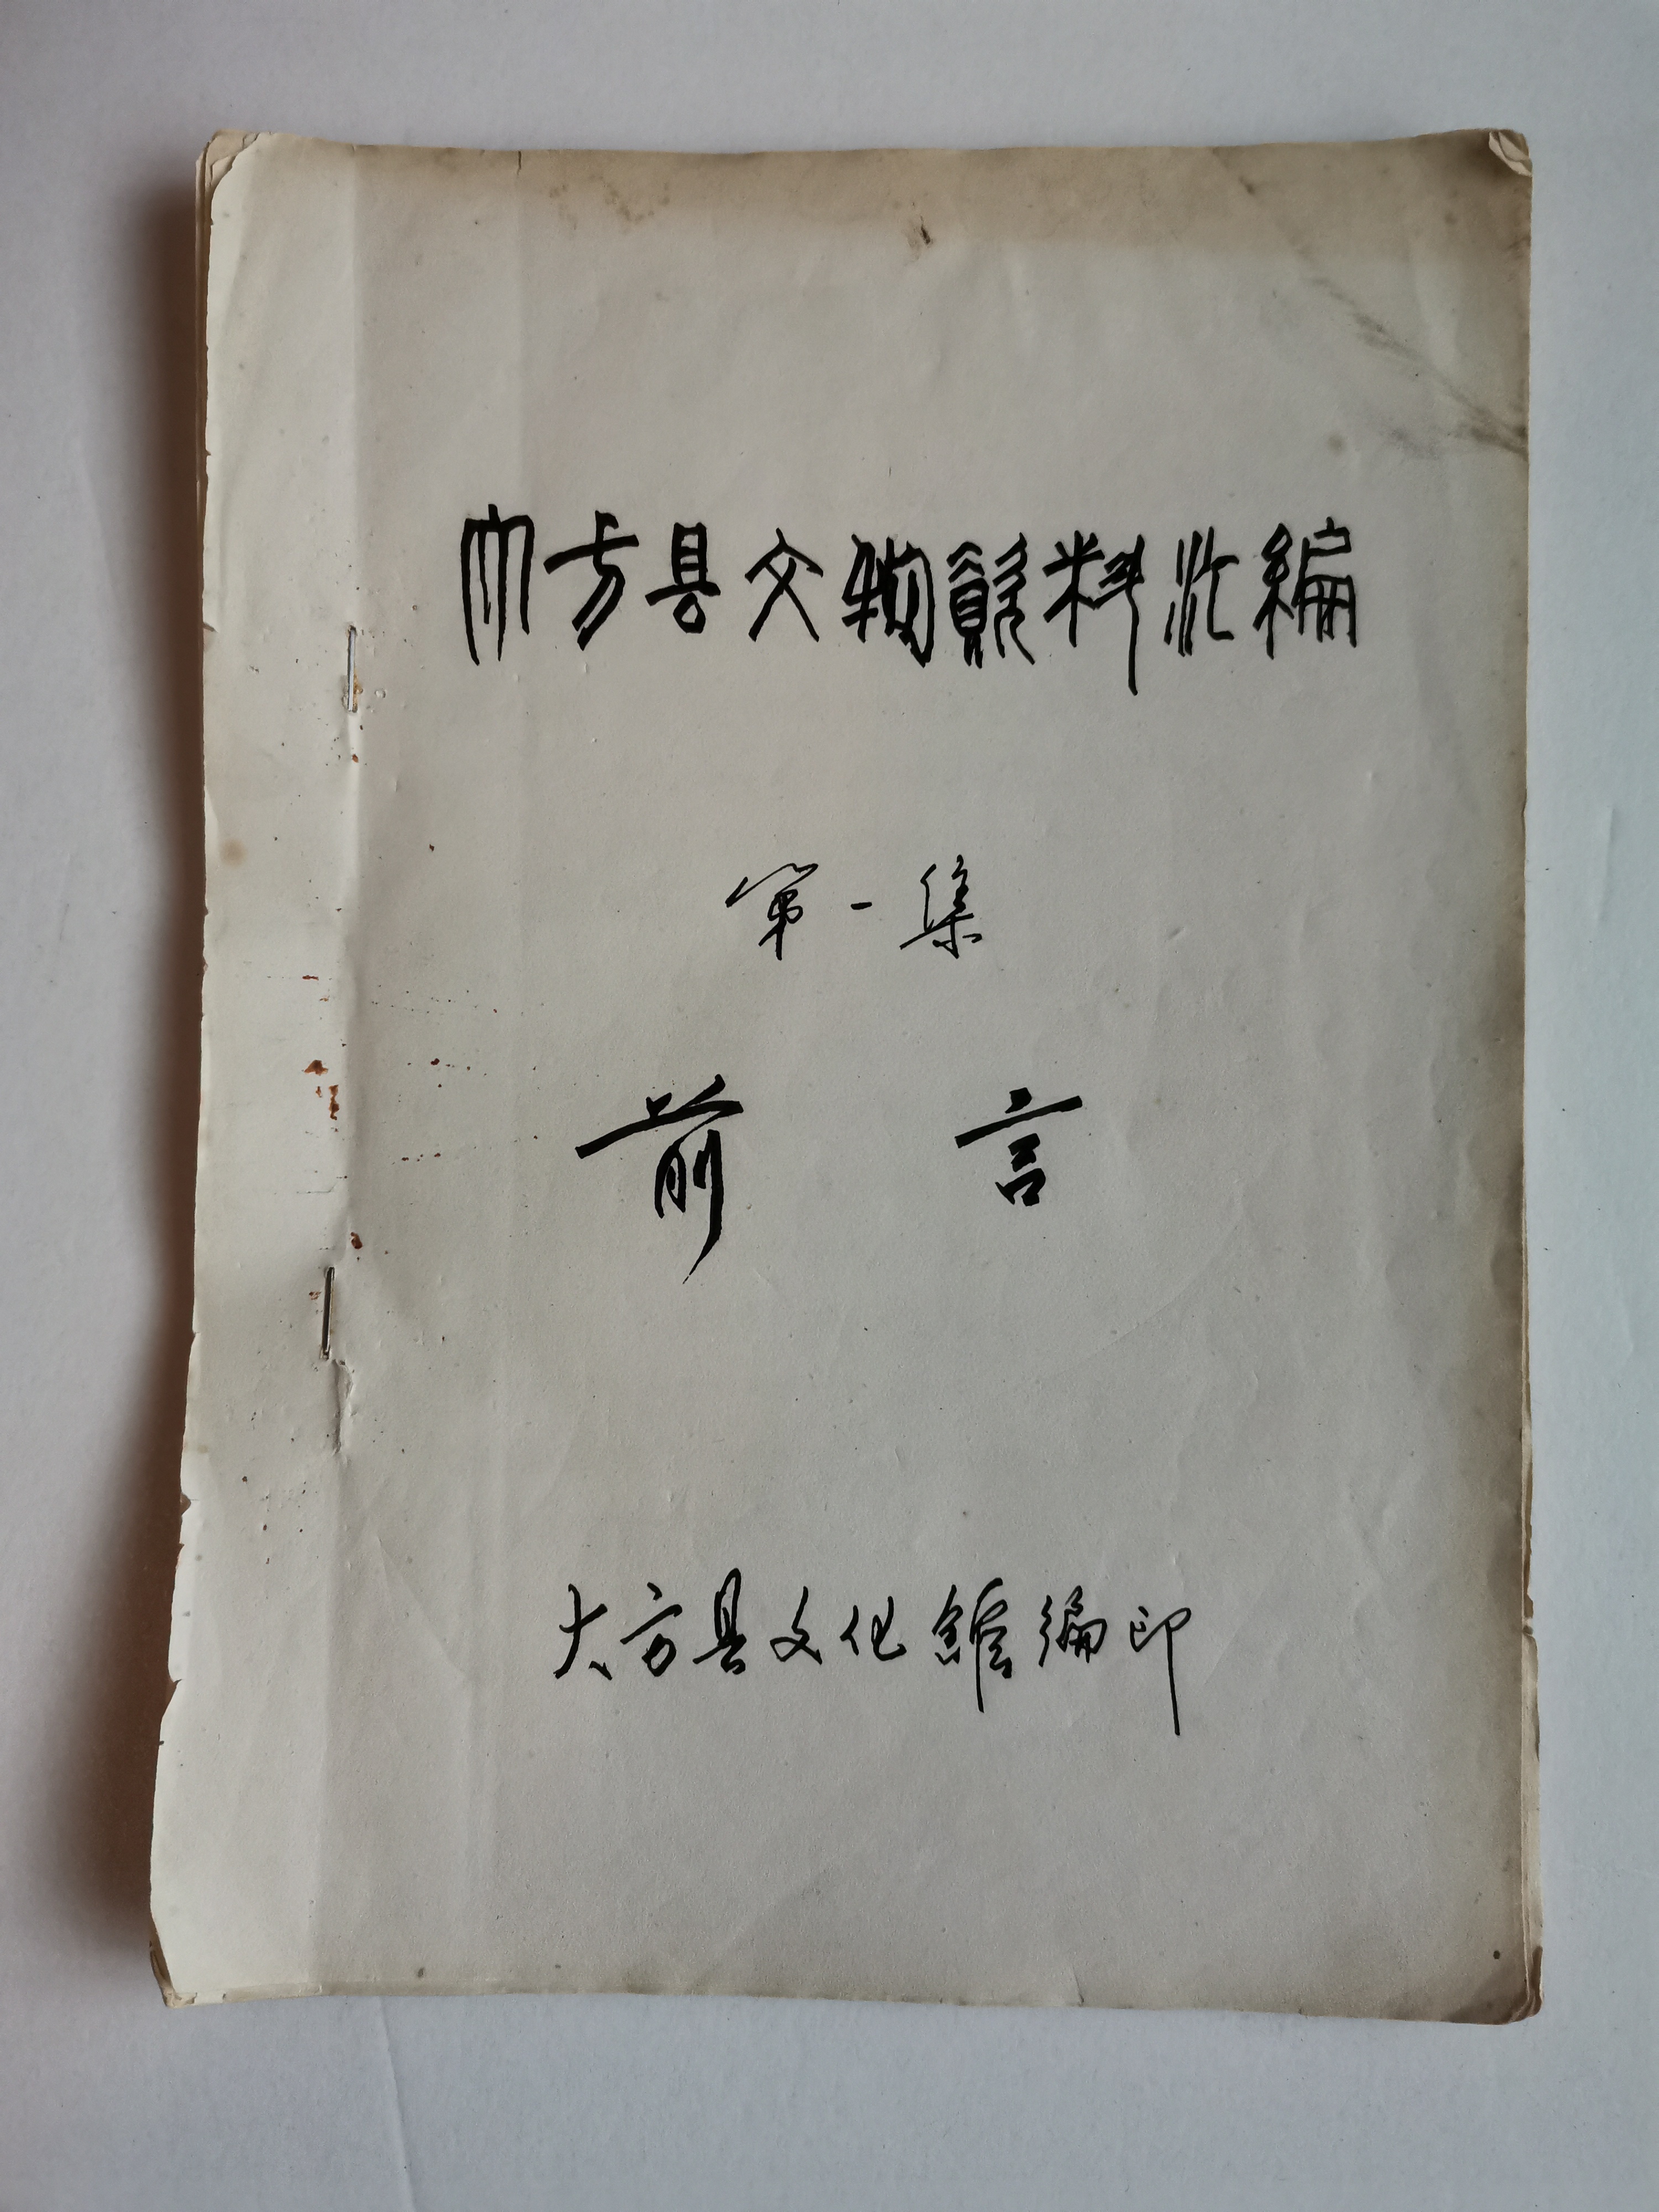 大方县文物資料汇编
第一集
前言
大方县文化館编印